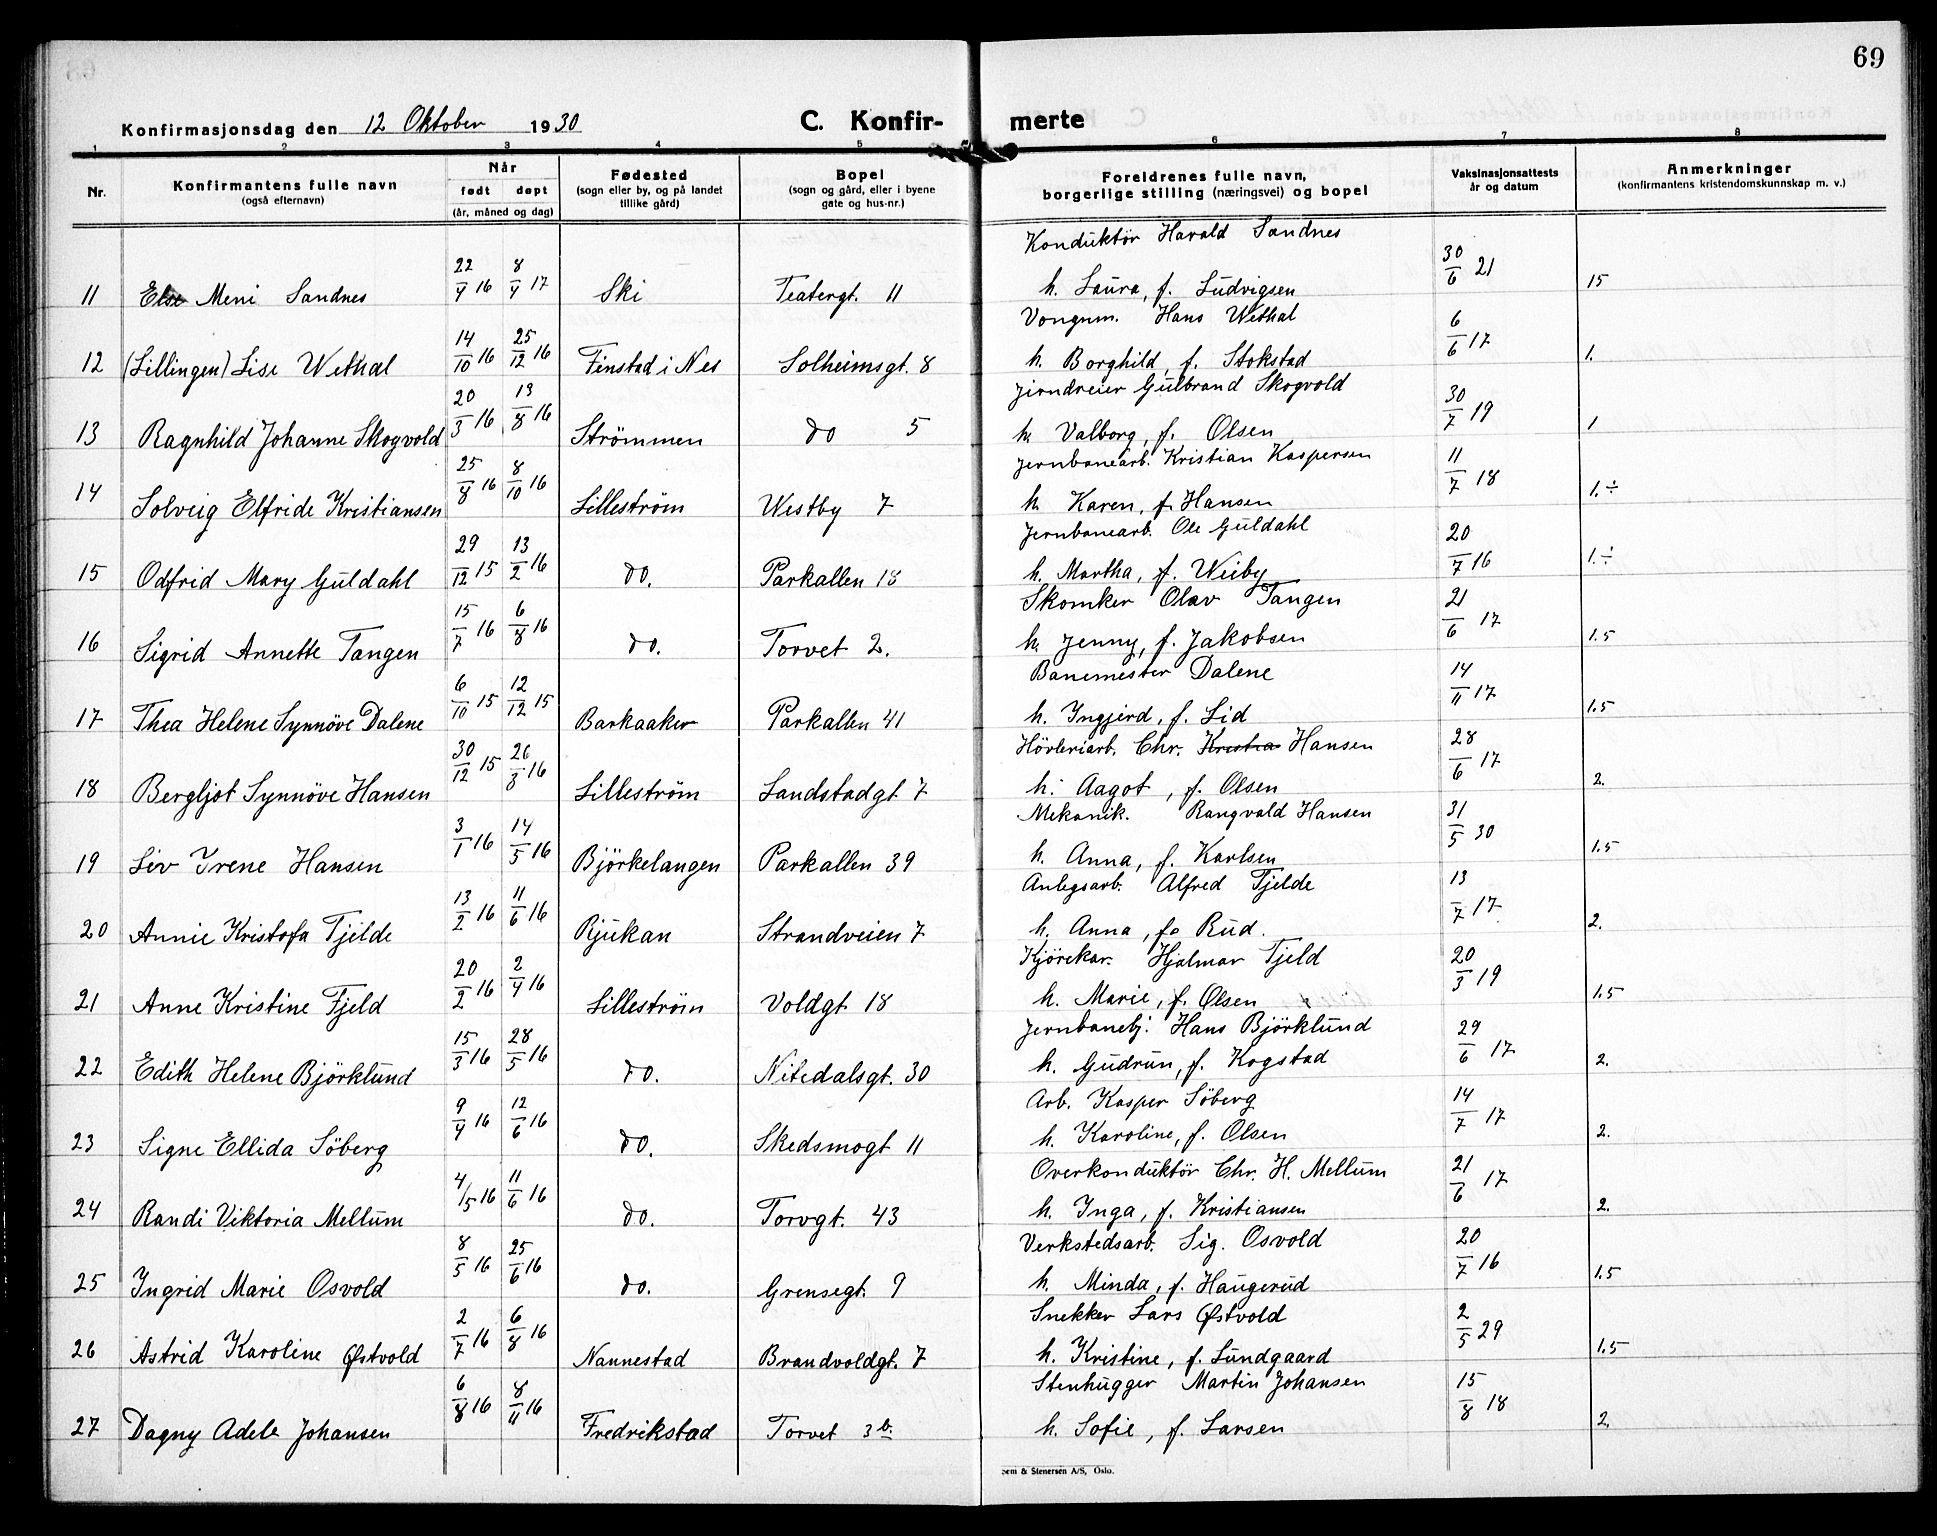 69
Konfirmasjonsdag den 12 Oktober 1930 C. Konfir- merte
1 2 3 4 5 6 7 8
Nr. Konfirmantens fulle navn (også efternavn) Når født døpt (år, måned og dag) Fødested (sogn eller by, og på landet tillike gård) Bopel (sogn og gård, eller i byene gate og hus-nr.) Foreldrenes fulle navn, borgerlige stilling (næringsvei) og bopel Vaksinasjonsattests år og datum Anmerkninger (konfirmantens kristendomskunnskap m. v.)
Konduktör Harald Sandnes
11 Else Meni Sandnes 22/4 16 8/4 17 Ski Teatergt. 11 h. Laura, f. Ludvigsen 30/6 21 15
Vongnm. Hans Wethal
12 (Lillingen) Lise Wethal 14/10 16 25/12 16 Finstad i Nes Solheimsgt. 8 h. Borghild, f. Stokstad 6/6 17 1.
Jerndreier Gulbrand Skogvold
13 Ragnhild Johanne Skogvold 20/3 16 13/8 16 Strömmen do 5 h. Valborg, f. Olsen 30/7 19 1
Jernbanearb. Kristian Kaspersen
14 Solveig Elfride Kristiansen 25/8 16 8/10 16 Lilleström Westby 7 h. Karen, f. Hansen 11/7 18 1.÷
Jernbanearb. Ole Guldahl
15 Odfrid Mary Guldahl 29/12 15 13/2 16 do. Parkallen 18 h. Martha, f. Weiby 20/7 16 1.÷
Skomker Olav Tangen
16 Sigrid Annette Tangen 15/7 16 6/8 16 do. Torvet 2. h. Jenny, f. Jakobsen 21/6 17 1.5
Banemester Dalene
17 Thea Helene Synnöve Dalene 6/10 15 12/12 15 Barkaaker Parkallen 41 h. Ingjerd, f. Lid 14/11 17 1.5
Hövleriarb. Chr. Kristia Hansen
18 Bergljot Synnöve Hansen 30/12 15 26/3 16 Lilleström Landstadgt 7 h. Aagot, f. Olsen 28/6 17 2.
Mekanik. Rangvald Hansen
19 Liv Irene Hansen 3/1 16 14/5 16 Björkelangen Parkallen 39 h. Anna, f. Karlsen 31/5 30 1.5
Anlegsarb. Alfred Tjelde
20 Annie Kristofa Tjelde 13/2 16 11/6 16 Rjukan Strandveien 7 h. Anna, f. Rud. 13/7 17 2.
Kjörekar. Hjalmar Fjeld
21 Anne Kristine Fjeld 20/2 16 2/4 16 Lilleström Voldgt. 18 h. Marie, f. Olsen 20/3 19 1.5
Jernbanebj. Hans Björklund
22 Edith Helene Björklund 15/3 16 28/5 16 do. Nitedalsgt. 30 h. Gudrun, f. Kogstad 29/6 17 2.
Arb. Kasper Söberg
23 Signe Ellida Söberg 9/4 16 12/6 16 do. Skedsmogt 11 h. Karoline, f. Olsen 14/7 17 2.
Overkonduktör Chr. H. Mellum
24 Randi Viktoria Mellum 4/5 16 11/6 16 do. Torvgt. 43 h. Inga, f. Kristiansen 21/6 17 2.
Verkstedsarb. Sig. Osvold
25 Ingrid Marie Osvold 8/5 16 25/6 16 do. Grensegt. 9 h. Minda, f. Haugerud 20/7 16 1.5
Snekker Lars Østvold
26 Astrid Karoline Østvold 2/7 16 6/8 16 Nannestad Brandvoldgt. 7 h. Kristine, f. Lundgaard 2/5 29 1.5
Stenhugger Martin Johansen
27 Dagny Adele Johansen 6/8 16 8/11 16 Fredrikstad Torvet 3 b. h. Sofie, f. Larsen 15/8 18 2.
Sem & Stenersen A/S, Oslo.